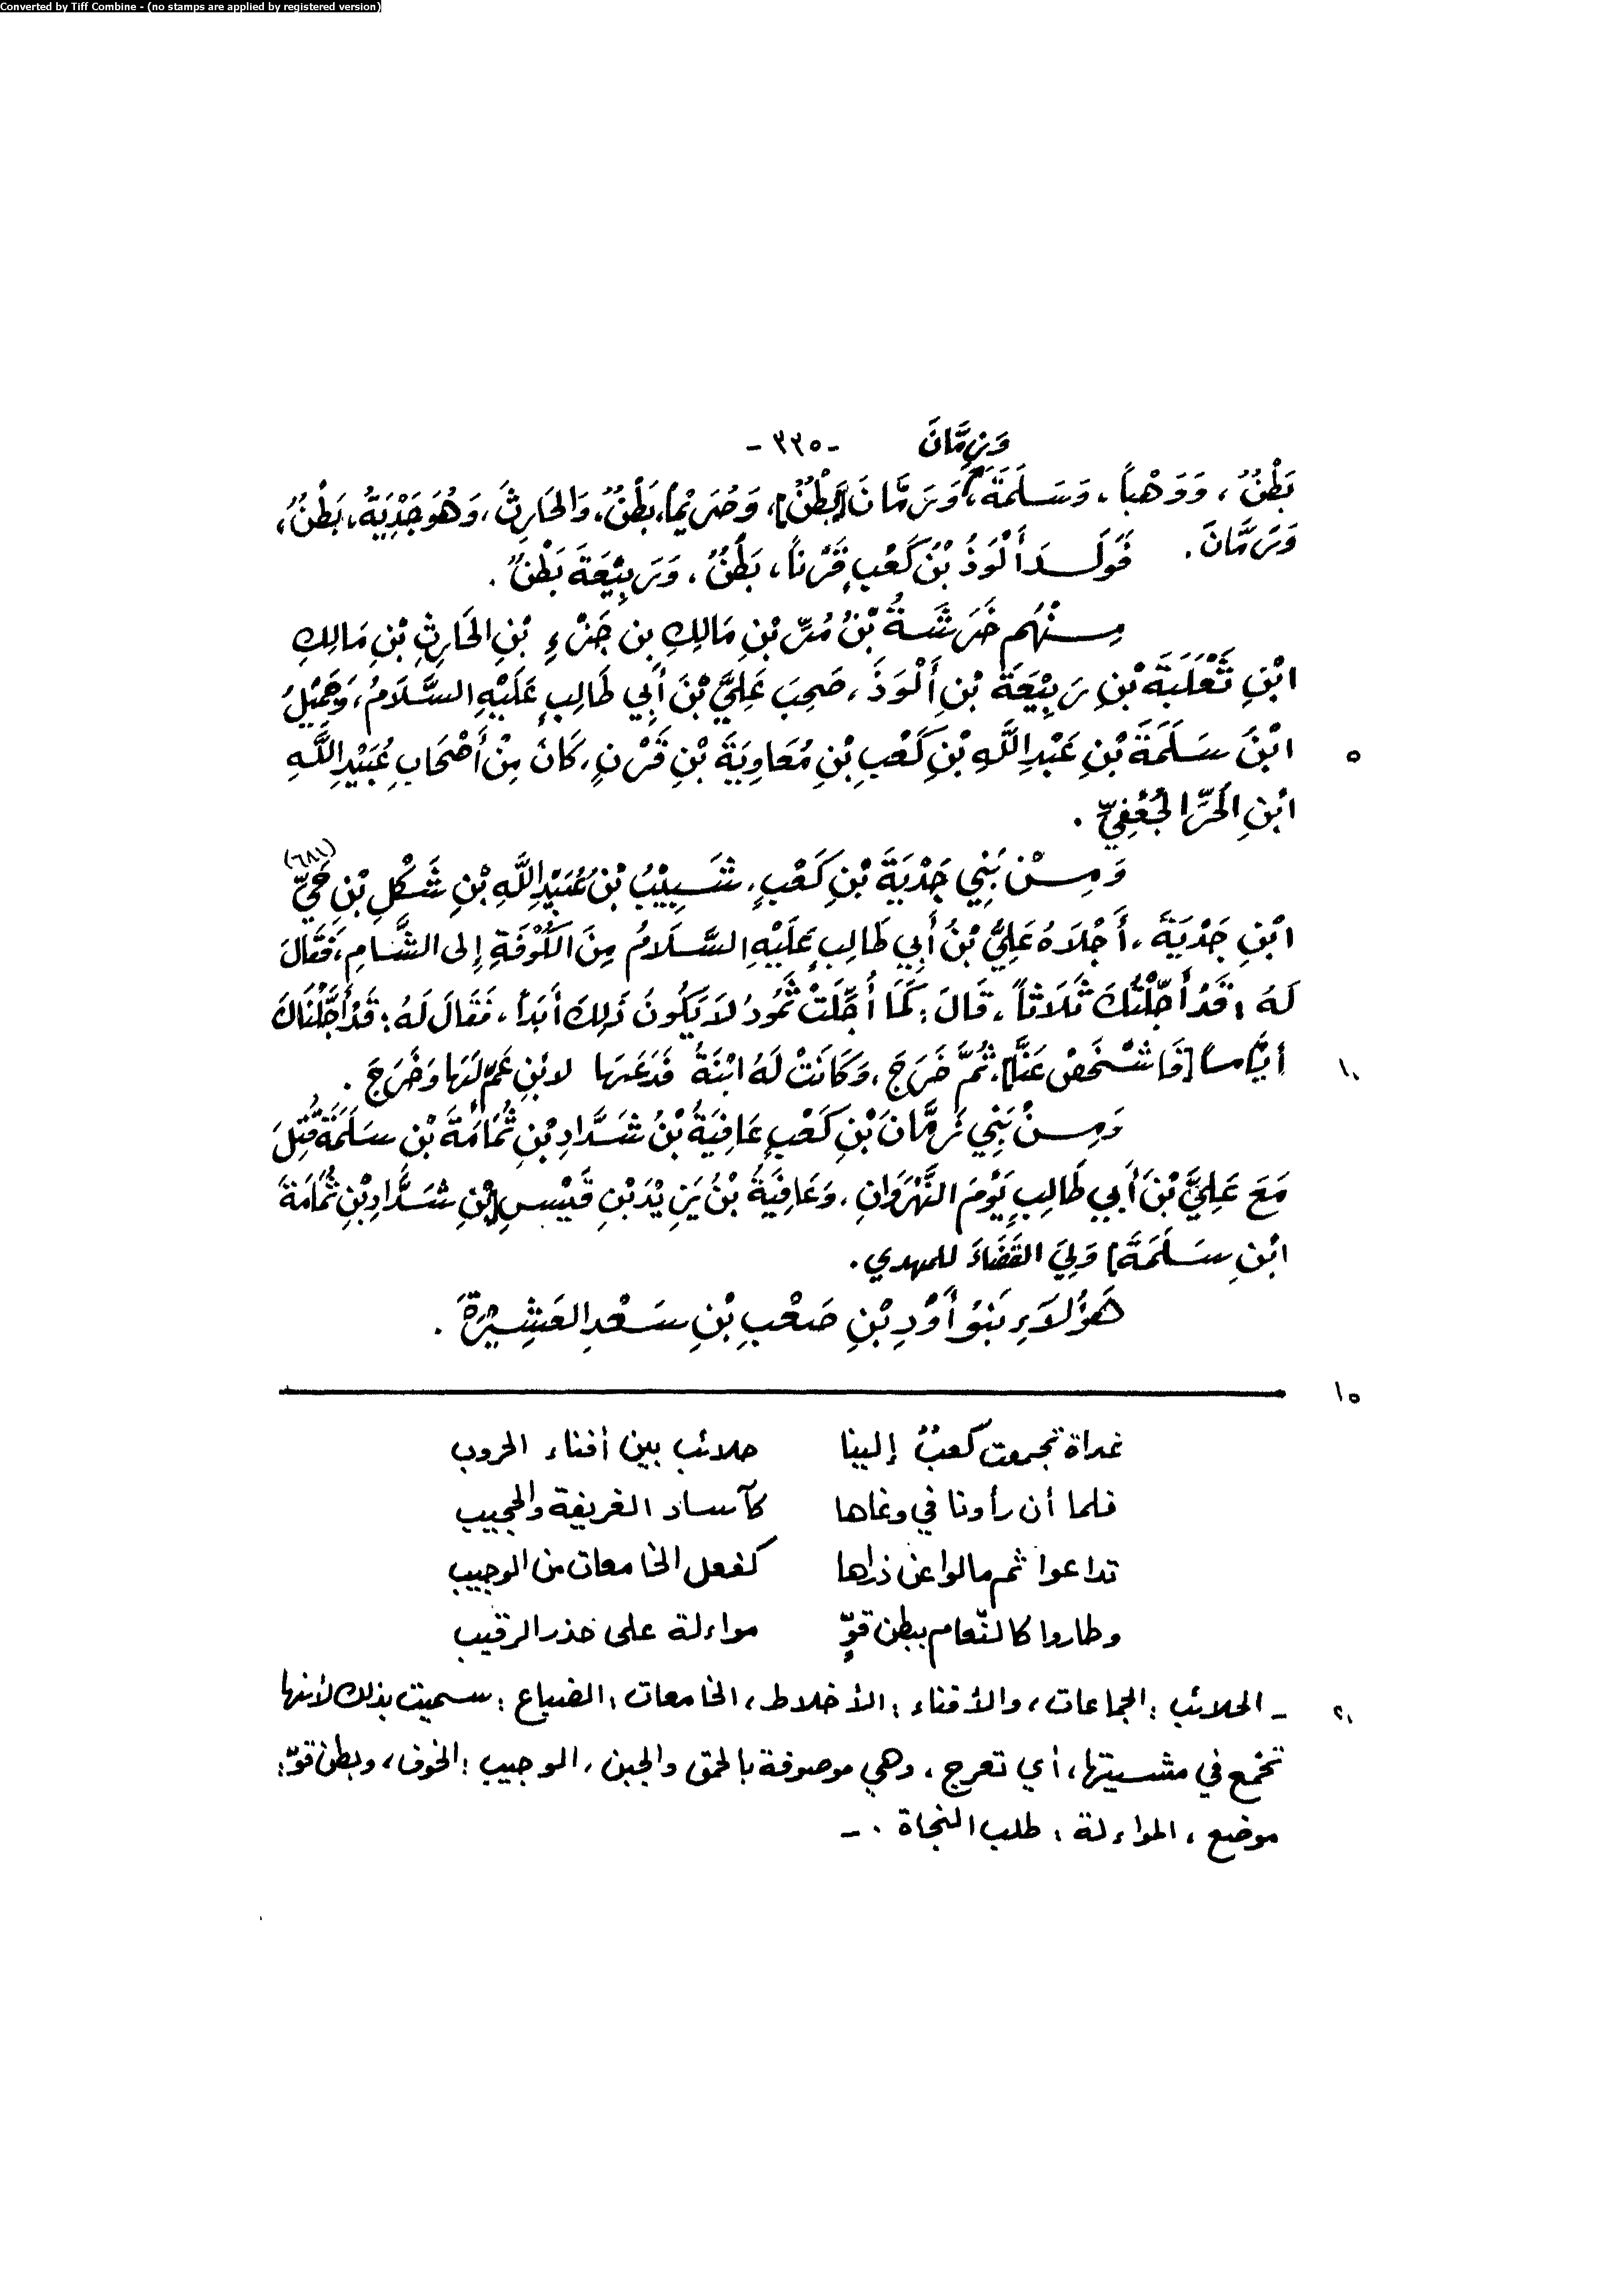 Converted by Tiff Combine - (no stamps are applied by registered version)
وَزِمَّانَ -٣٢٥-
بَطْنٌ، وَوَهْباً، وَسَلَمَةَ، وَرَمَّانَ [بَطْنٌ]، وَصُرَيْماً، بَطْنٌ، وَالحَارِثَ، وَهُوَ جَدْيَةُ، بَطْنٌ،
وَرَمَّانَ. فَوَلَدَ أَلْوَذُ بْنُ كَعْبٍ قَرْناً، بَطْنٌ، وَرَبِيْعَةَ بَطْنٌ.
مِنْهُم خَرَشَةُ بْنُ مُرِّ بْنِ مَالِكِ بن جَزْءِ بْنِ الحَارِثِ بْنِ مَالِكِ
ابْنِ ثَعْلَبَةَ بْنِ رَبِيْعَةَ بْنِ أَلْوَذَ، صَحِبَ عَلِيَّ بْنَ أَبِي طَالِبٍ عَلَيْهِ السَّلَامُ، وَجَمِيْلُ
ابْنَ سَلَمَةَ بْنِ عَبْدِ اللَّهِ بْنِ كَعْبِ بْنِ مُعَاوِيَةَ بْنِ قَرْنٍ، كَانَ مِنْ أَصْحَابِ عُبَيْدِ اللَّهِ
٥
ابْنِ الحُرِّ الجُعْفِيِّ.
وَمِنْ بَنِي جَدْيَةَ بْنِ كَعْبٍ، شَبِيْبُ بْنُ عُبَيْدِ اللَّهِ بْنِ شَكْلِ بْنِ حُيَيِّ (٦٨١)
ابْنِ جَدْيَةَ، أَجْلَاهُ عَلِيُّ بْنُ أَبِي طَالِبٍ عَلَيْهِ السَّلَامُ مِنَ الكُوْفَةِ إِلى الشَّامِ، فَقَالَ
لَهُ: قَدْ أَجَّلْتُكَ ثَلَاثاً، قَالَ: كَمَا أُجِّلَتْ ثَمُودُ لَا يَكُونُ ذَلِكَ أَبَداً، فَقَالَ لَهُ: قَدْ أَجَّلْنَاكَ
أَيَّاماً [فَاشْخَصْ عَنَّا]. ثُمَّ خَرَجَ، وَكَانَتْ لَهُ ابْنَةُ فَدَعَهَا لابْنِ عَمٍّ لَهَا وَخَرَجَ.
١٠
وَمِنْ بَنِي زِمَّانَ بْنِ كَعْبٍ عَافِيَةُ بْنُ شَدَّادِ بْنِ ثُمَامَةَ بْنِ سَلَمَةَ قُتِلَ
مَعَ عَلِيَّ بْنَ أَبِي طَالِبٍ يَوْمَ النَّهْرَوَانِ، وَعَافِيَةُ بْنُ يَزِيْدَ بْنِ قَيْسٍ [بْنِ شَدَّادِ بْنِ ثُمَامَةَ
ابْنِ سَلَمَةَ] وَلِيَ القَضَاءَ للمهدي.
هَؤُلَاءِ بَنُو أَوْدِ بْنِ صَعْبِ بْنِ سَعْدِ العَشِيْرَةَ.
١٥
غداة تجمعت كعبٌ إلينا حلائب بين أفناء الحروب
فلما أن رأونا في وغاها كآساد الغريفة والحجيب
تداعوا ثم مالوا عن ذراها كفعل الخامعات من الوجيب
وطاروا كالنّعام ببطن قوٍّ مواءلة على حذر الرقيب
ـ الحلائب: الجماعات، والأفناء: الأخلاط، الخامعات: الضباع: سميت بذلك لأنها
٢٠
تخمع في مشيتها، أي تعرج، وهي موصوفة بالحمق والجبن، الوجيب: الخوف، وبطن قوّ:
موضع، المواءلة: طلب النجاة. ـ